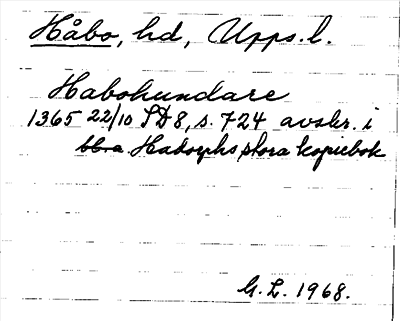 Håbo, hd, Upps. l.
Habohundare
1365 22/10 SD 8, s. 724 avskr. i
Hadorphs stora kopiebok
G. L. 1968.